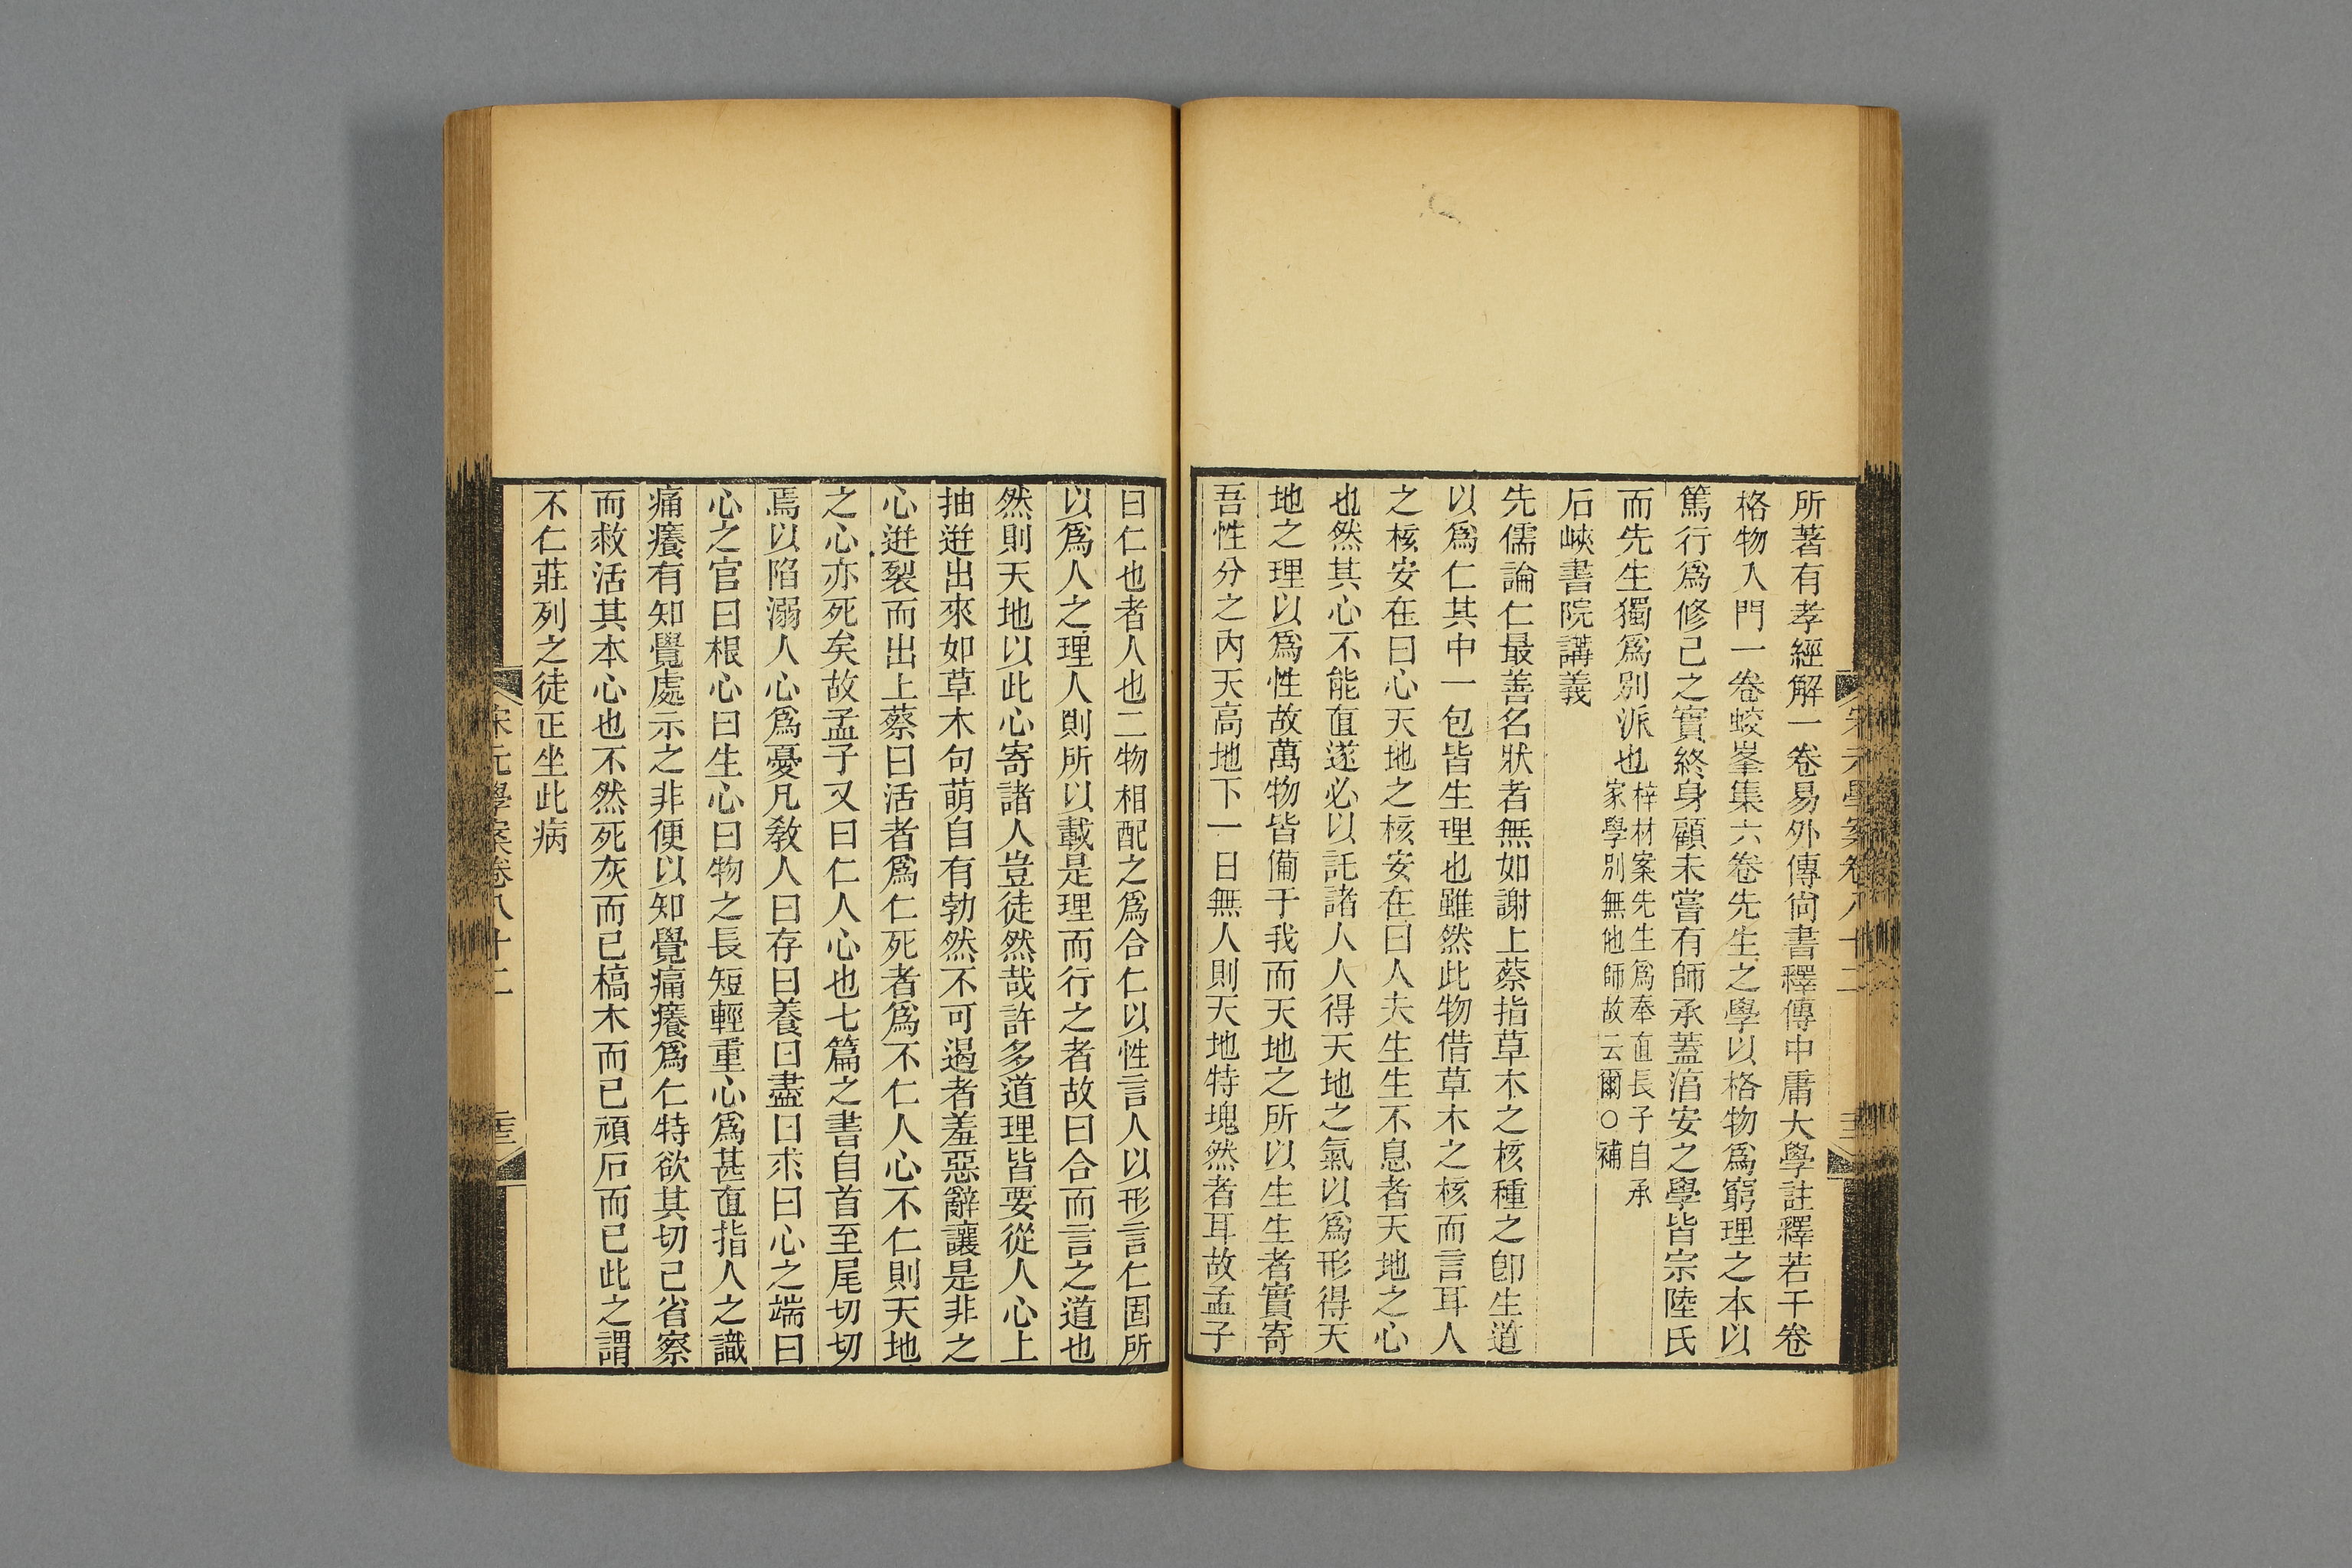 所著有孝經解一卷易外傳尙書釋傳中庸大學註釋若干卷
格物入門一卷蛟峯集六卷先生之學以格物爲窮理之本以
篤行爲修己之實終身顧未嘗有師承蓋淳安之學皆宗陸氏
而先生獨爲別派也
梓材案先生爲奉直長子自承
家學別無他師故云爾○補
石峽書院講義
先儒論仁最善名狀者無如謝上蔡指草木之核種之卽生道
以爲仁其中一包皆生理也雖然此物借草木之核而言耳人
之核安在曰心天地之核安在曰人夫生生不息者天地之心
也然其心不能直遂必以託諸人人得天地之氣以爲形得天
地之理以爲性故萬物皆備于我而天地之所以生生者實寄
吾性分之內天高地下一日無人則天地特塊然者耳故孟子
曰仁也者人也二物相配之爲合仁以性言人以形言仁固所
以爲人之理人則所以載是理而行之者故曰合而言之道也
然則天地以此心寄諸人豈徒然哉許多道理皆要從人心上
抽迸出來如草木句萌自有勃然不可遏者羞惡辭讓是非之
心迸裂而出上蔡曰活者爲仁死者爲不仁人心不仁則天地
之心亦死矣故孟子又曰仁人心也七篇之書自首至尾切切
焉以陷溺人心爲憂凡敎人曰存曰養曰盡曰求曰心之端曰
心之官曰根心曰生心曰物之長短輕重心爲甚直指人之識
痛癢有知覺處示之非便以知覺痛癢爲仁特欲其切己省察
而救活其本心也不然死灰而已槁木而已頑石而已此之謂
不仁莊列之徒正坐此病
宋元學案卷八十二